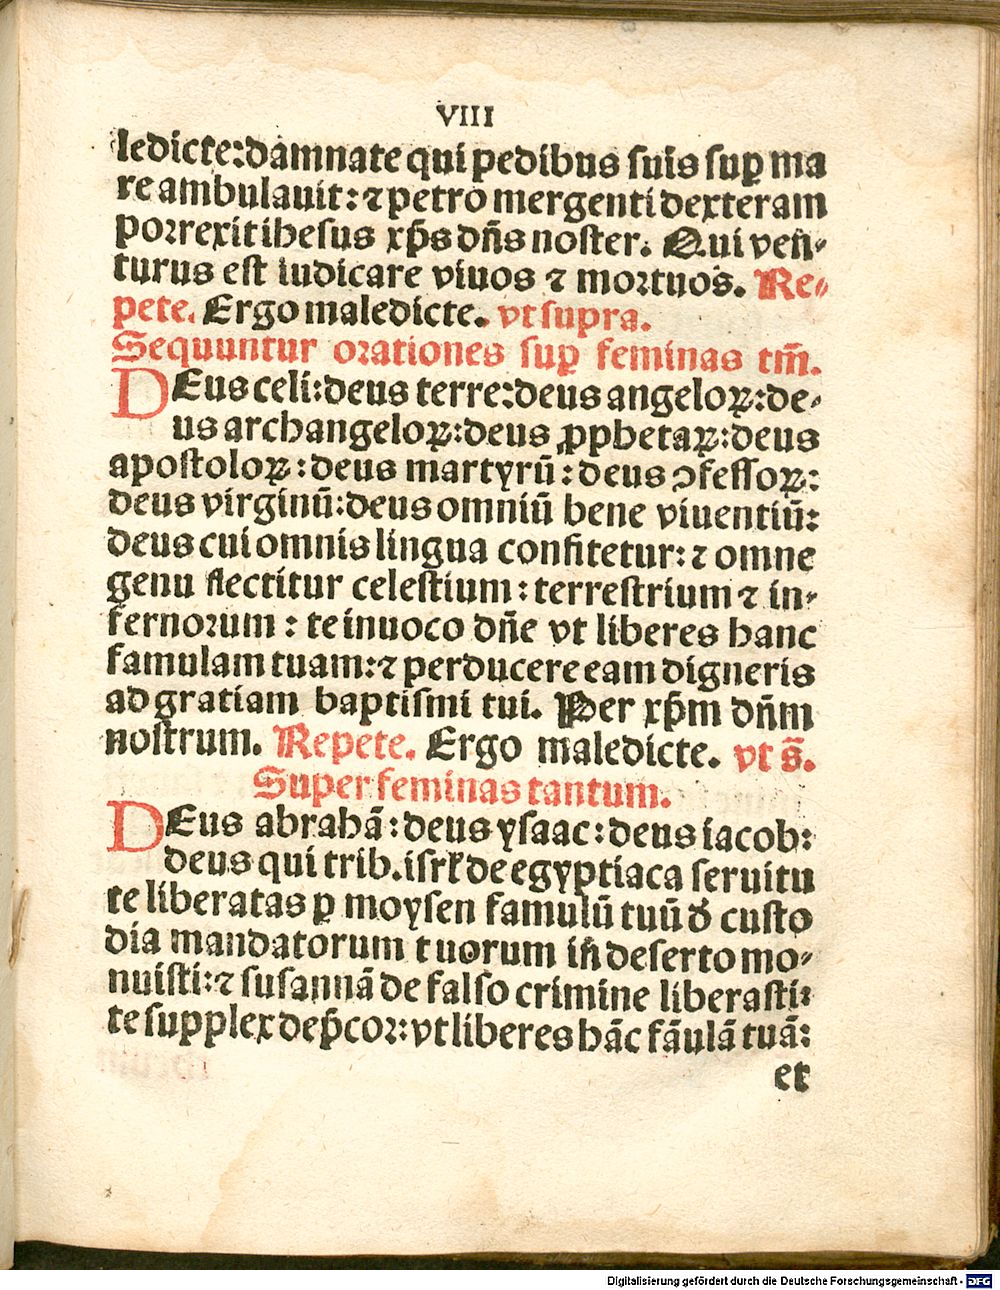 VIII
ledicte:damnate qui pedibus suis suꝑ ma
re ambulauit: ⁊ petro mergenti dexteram
poꝛrexit ihesus xp̄s dn̄s noster. Qui ven-
turus est iudicare viuos ⁊ moꝛtuos. Re-
pete. Ergo maledicte. vt supra.
Sequuntur oꝛationes suꝑ feminas tm̄.
DEus celi:deus terre:deus angeloꝝ:de-
us archangeloꝝ:deus ꝓphetaꝝ:deus
apostoloꝝ:deus martyrū:deus ↄfessoꝝ:
deus virginū:deus omniū bene viuentiū:
deus cui omnis lingua confitetur: ⁊ omne
genu flectitur celestium: terrestrium ⁊ in-
fernoꝛum: te inuoco dn̄e vt liberes hanc
famulam tuam: ⁊ perducere eam digneris
ad gratiam baptismi tui. Per xp̄m dn̄m
nostrum. Repete. Ergo maledicte. vt s̄.
Super feminas tantum.
DEus abrahā: deus ysaac: deus iacob:
deus qui trib. isrł de egyptiaca seruitu
te liberatas ꝑ moysen famulū tuū ⁊ de custo
dia mandatorum tuorum in̄ deserto mo-
nuisti: ⁊ susannā de falso crimine liberasti:
te supplex dep̄coꝛ: vt liberes hāc fāulā tuā:
et
Digitalisierung gefördert durch die Deutsche Forschungsgemeinschaft - DFG